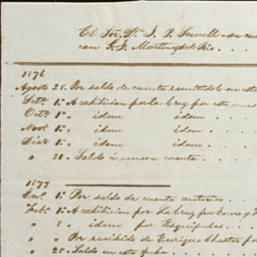 El Sor. Dn. J. P. Sewell - su cu
con G. F. Martinez del Rio.
1876
Agosto 28. Por saldo de cuenta remitida en esta
Setbe. 1o. A exhibicion por la Cruz por este mes
Octe. 1o. " idem idem
Nove. 1o. " idem idem
Dice 1o. " idem idem
" 31. Saldo á nueva cuenta
1877
Eno. 1o. Por saldo de cuenta anterior
Febo. 1o. A exhibicion por La Cruz por Enero y F
" 8 " idem por Esquipulas
" " Por recibido de Enrique Chester por
" 28 Saldo en esta fecha